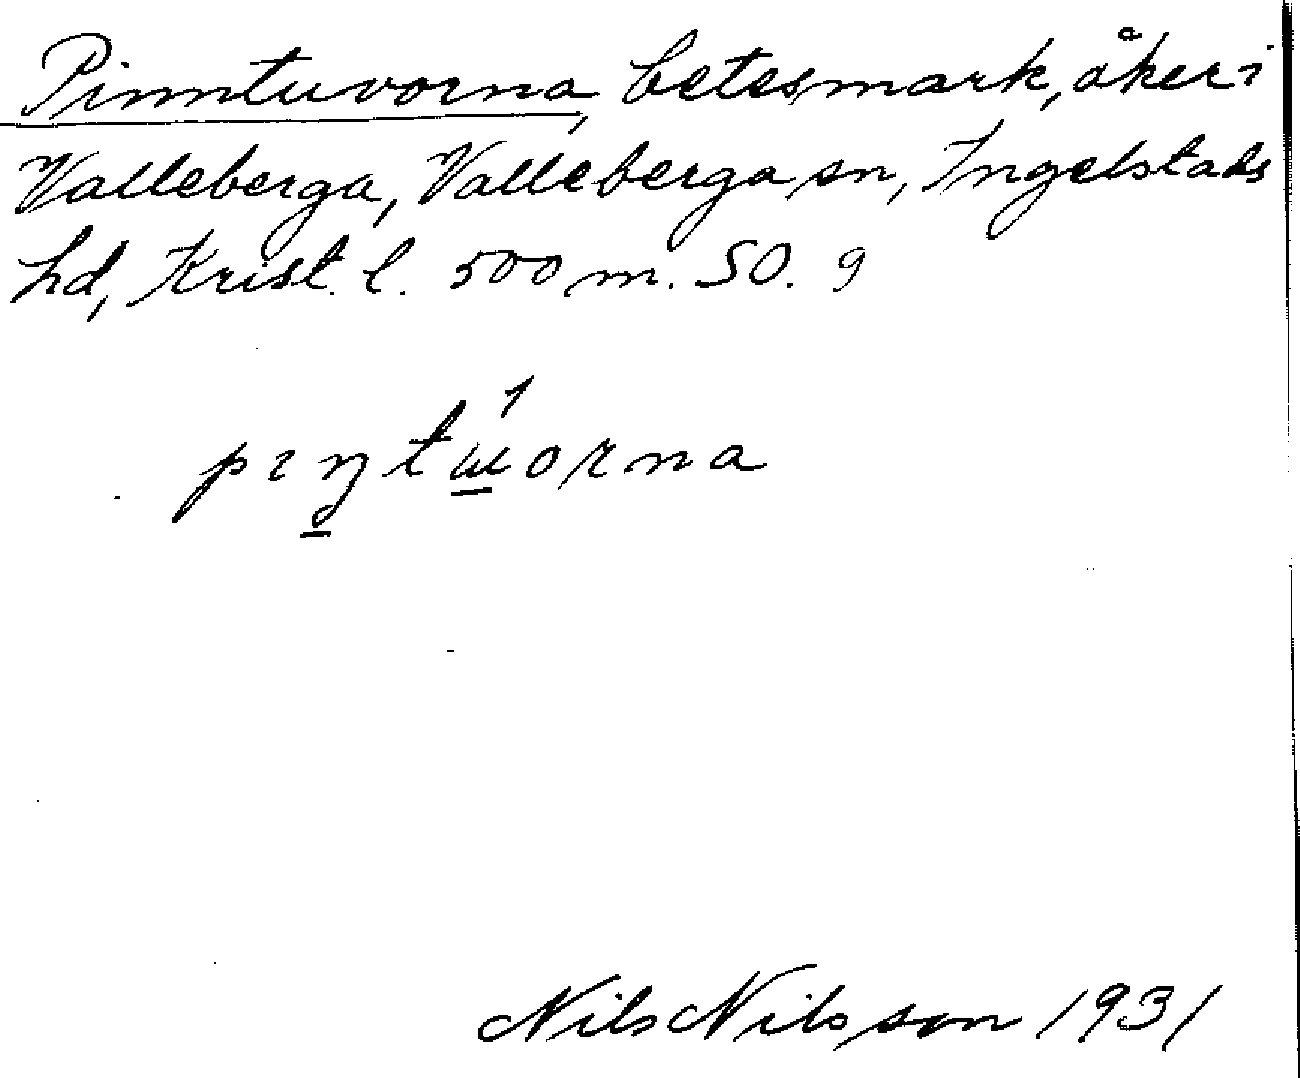 Pinntuvorna, betesmark, åker i
Valleberga, Valleberga sn, Ingelstads
hd, Krist. l. 500 m. SO. 9
Nils Nilsson 1931